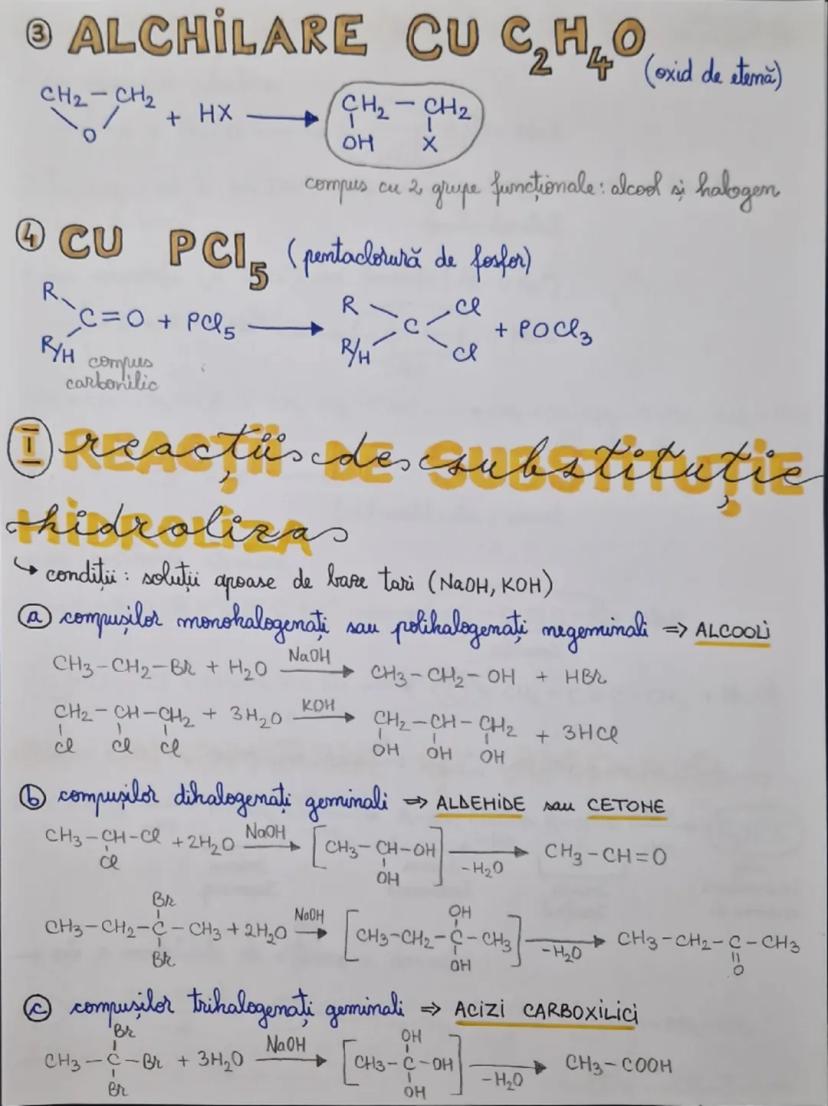 ③ ALCHILARE CU C₂H₄O (oxid de etenă)
CH₂ — CH₂ + HX → CH₂ — CH₂
O OH X
compus cu 2 grupe funcționale: alcool și halogen
④ CU PCl₅ (pentaclorură de fosfor)
R R Cl
C=O + PCl₅ → C + POCl₃
R/H R/H Cl
compus
carbonilic
Ⓘ reacții de substituție
hidroliza
↳ condiții: soluții apoase de baze tari (NaOH, KOH)
ⓐ compușilor monohalogenați sau polihalogenați negeminali ⇒ ALCOOLI
NaOH
CH₃-CH₂-Br + H₂O → CH₃-CH₂-OH + HBr
KOH
CH₂-CH-CH₂ + 3H₂O → CH₂-CH-CH₂ + 3HCl
Cl Cl Cl OH OH OH
ⓑ compușilor dihalogenați geminali ⇒ ALDEHIDE sau CETONE
NaOH
CH₃-CH-Cl + 2H₂O → [CH₃-CH-OH] → CH₃-CH=O
Cl OH -H₂O
Br NaOH OH
CH₃-CH₂-C-CH₃ + 2H₂O → [CH₃-CH₂-C-CH₃] → CH₃-CH₂-C-CH₃
Br OH -H₂O O
ⓒ compușilor trihalogenați geminali ⇒ ACIZI CARBOXILICI
Br NaOH OH
CH₃-C-Br + 3H₂O → [CH₃-C-OH] → CH₃-COOH
Br OH -H₂O